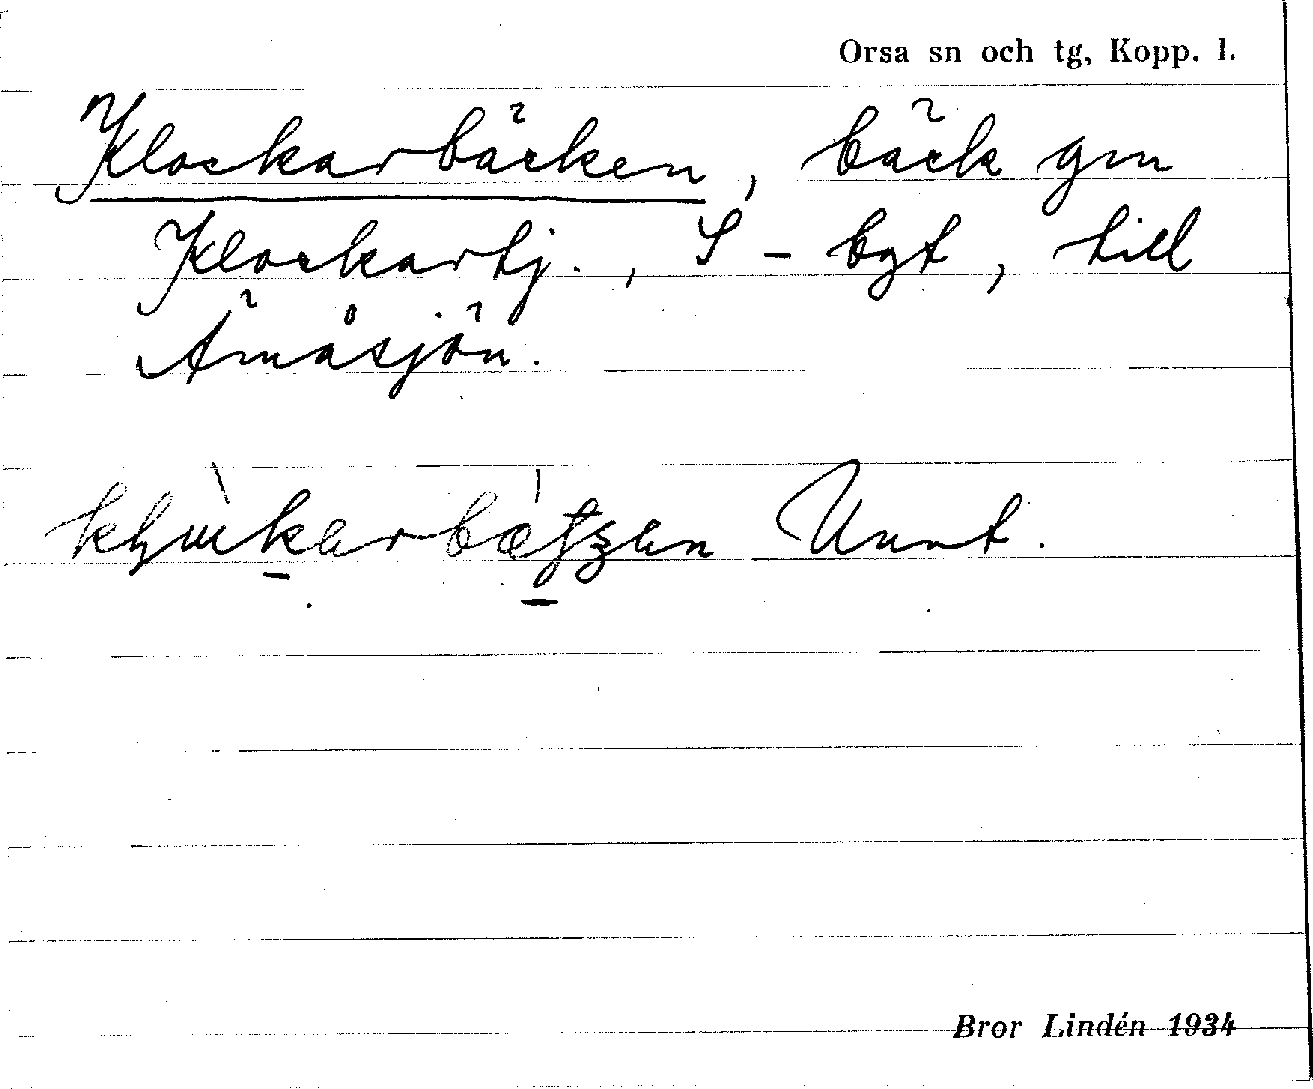 Orsa sn och tg, Kopp. l.
Klockarbäcken, bäck gm
Klockartj., S-byt, till
Ämåsjön.
Unnt.
Bror Lindén 1934